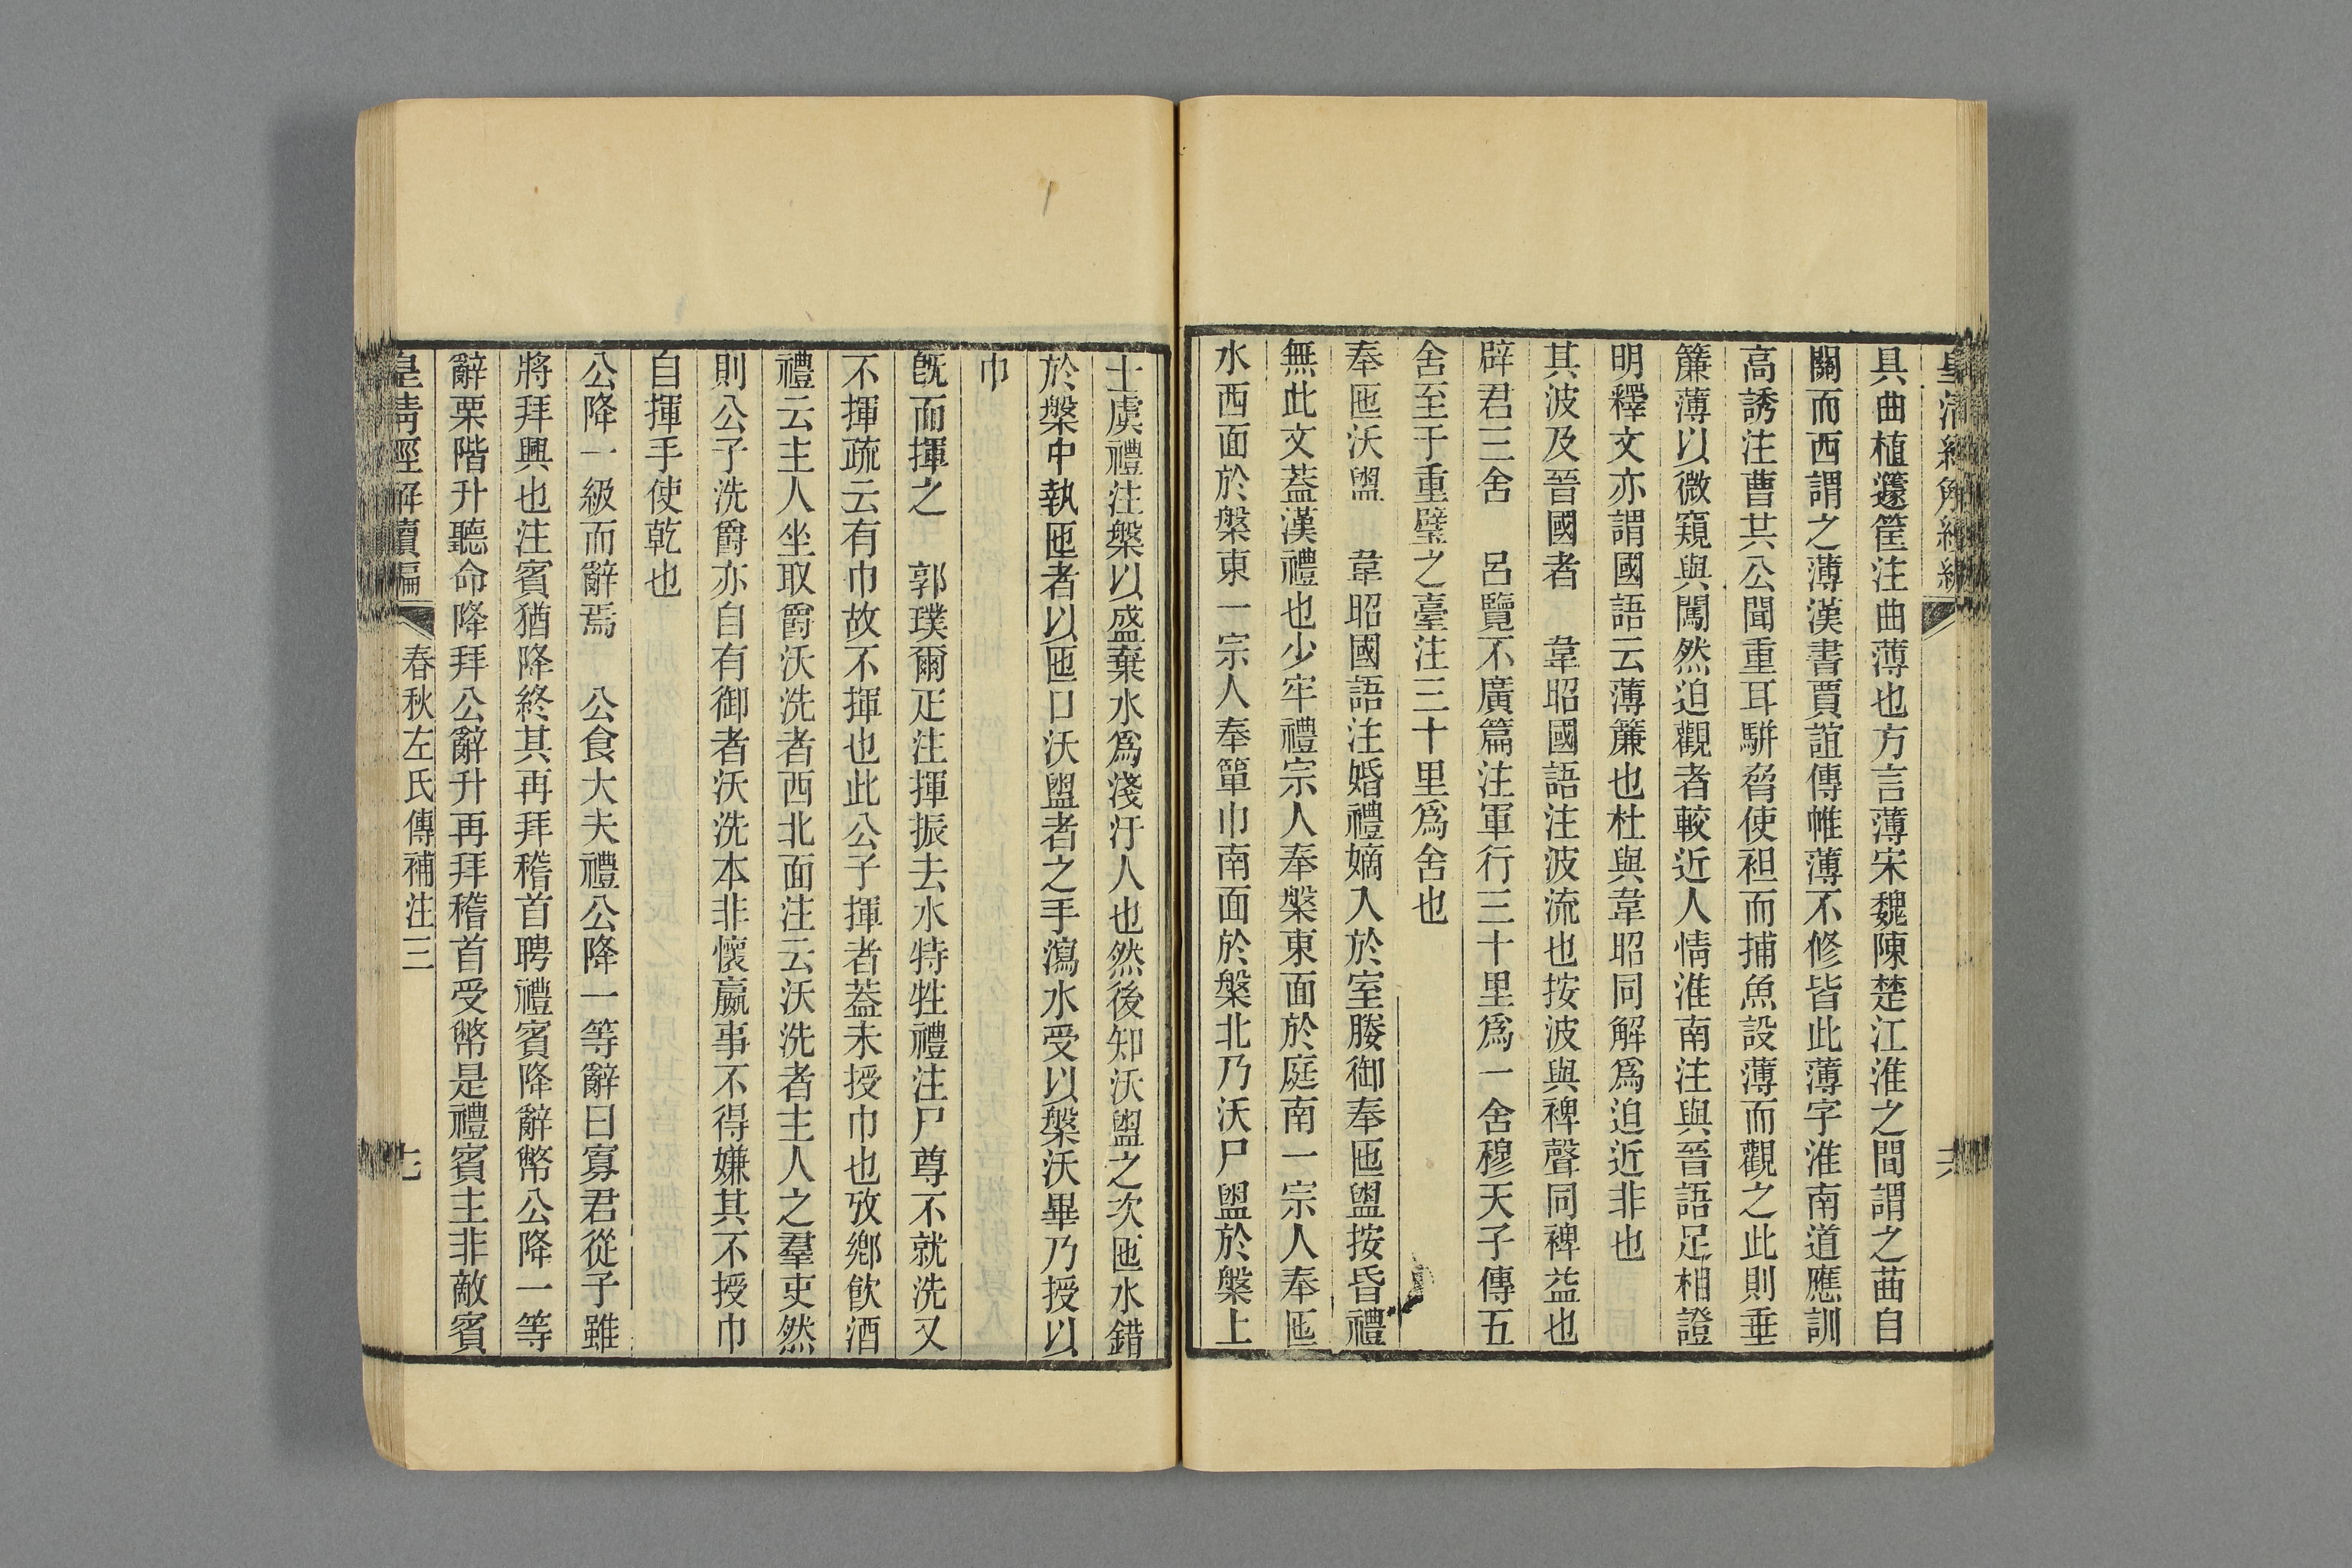 具曲植籧筐注曲薄也方言薄宋魏陳楚江淮之間謂之苖自
關而西謂之薄漢書賈誼傳帷薄不修皆此薄字淮南道應訓
高誘注曹共公聞重耳駢脅使袒而捕魚設薄而觀之此則垂
簾薄以微窺與闖然迫觀者較近人情淮南注與晉語足相證
明釋文亦謂國語云薄簾也杜與韋昭同解爲迫近非也
其波及晉國者　韋昭國語注波流也按波與裨聲同裨益也
辟君三舍　呂覽不廣篇注軍行三十里爲一舍穆天子傳五
舍至于重璧之臺注三十里爲舍也
奉匜沃盥　韋昭國語注婚禮嫡入於室媵御奉匜盥按昏禮
無此文葢漢禮也少牢禮宗人奉槃東面於庭南一宗人奉匜
水西面於槃東一宗人奉簞巾南面於槃北乃沃尸盥於槃上
士虞禮注槃以盛棄水爲淺汙人也然後知沃盥之次匜水錯
於槃中執匜者以匜口沃盥者之手瀉水受以槃沃畢乃授以
巾
旣而揮之　郭璞爾疋注揮振去水特牲禮注尸尊不就洗又
不揮疏云有巾故不揮也此公子揮者葢未授巾也攷鄉飮酒
禮云主人坐取爵沃洗者西北面注云沃洗者主人之羣吏然
則公子洗爵亦自有御者沃洗本非懷嬴事不得嫌其不授巾
自揮手使乾也
公降一級而辭焉　公食大夫禮公降一等辭曰寡君從子雖
將拜興也注賓猶降終其再拜稽首聘禮賓降辭幣公降一等
辭栗階升聽命降拜公辭升再拜稽首受幣是禮賓主非敵賓
皇淸經解續編　春秋左氏傳補注三